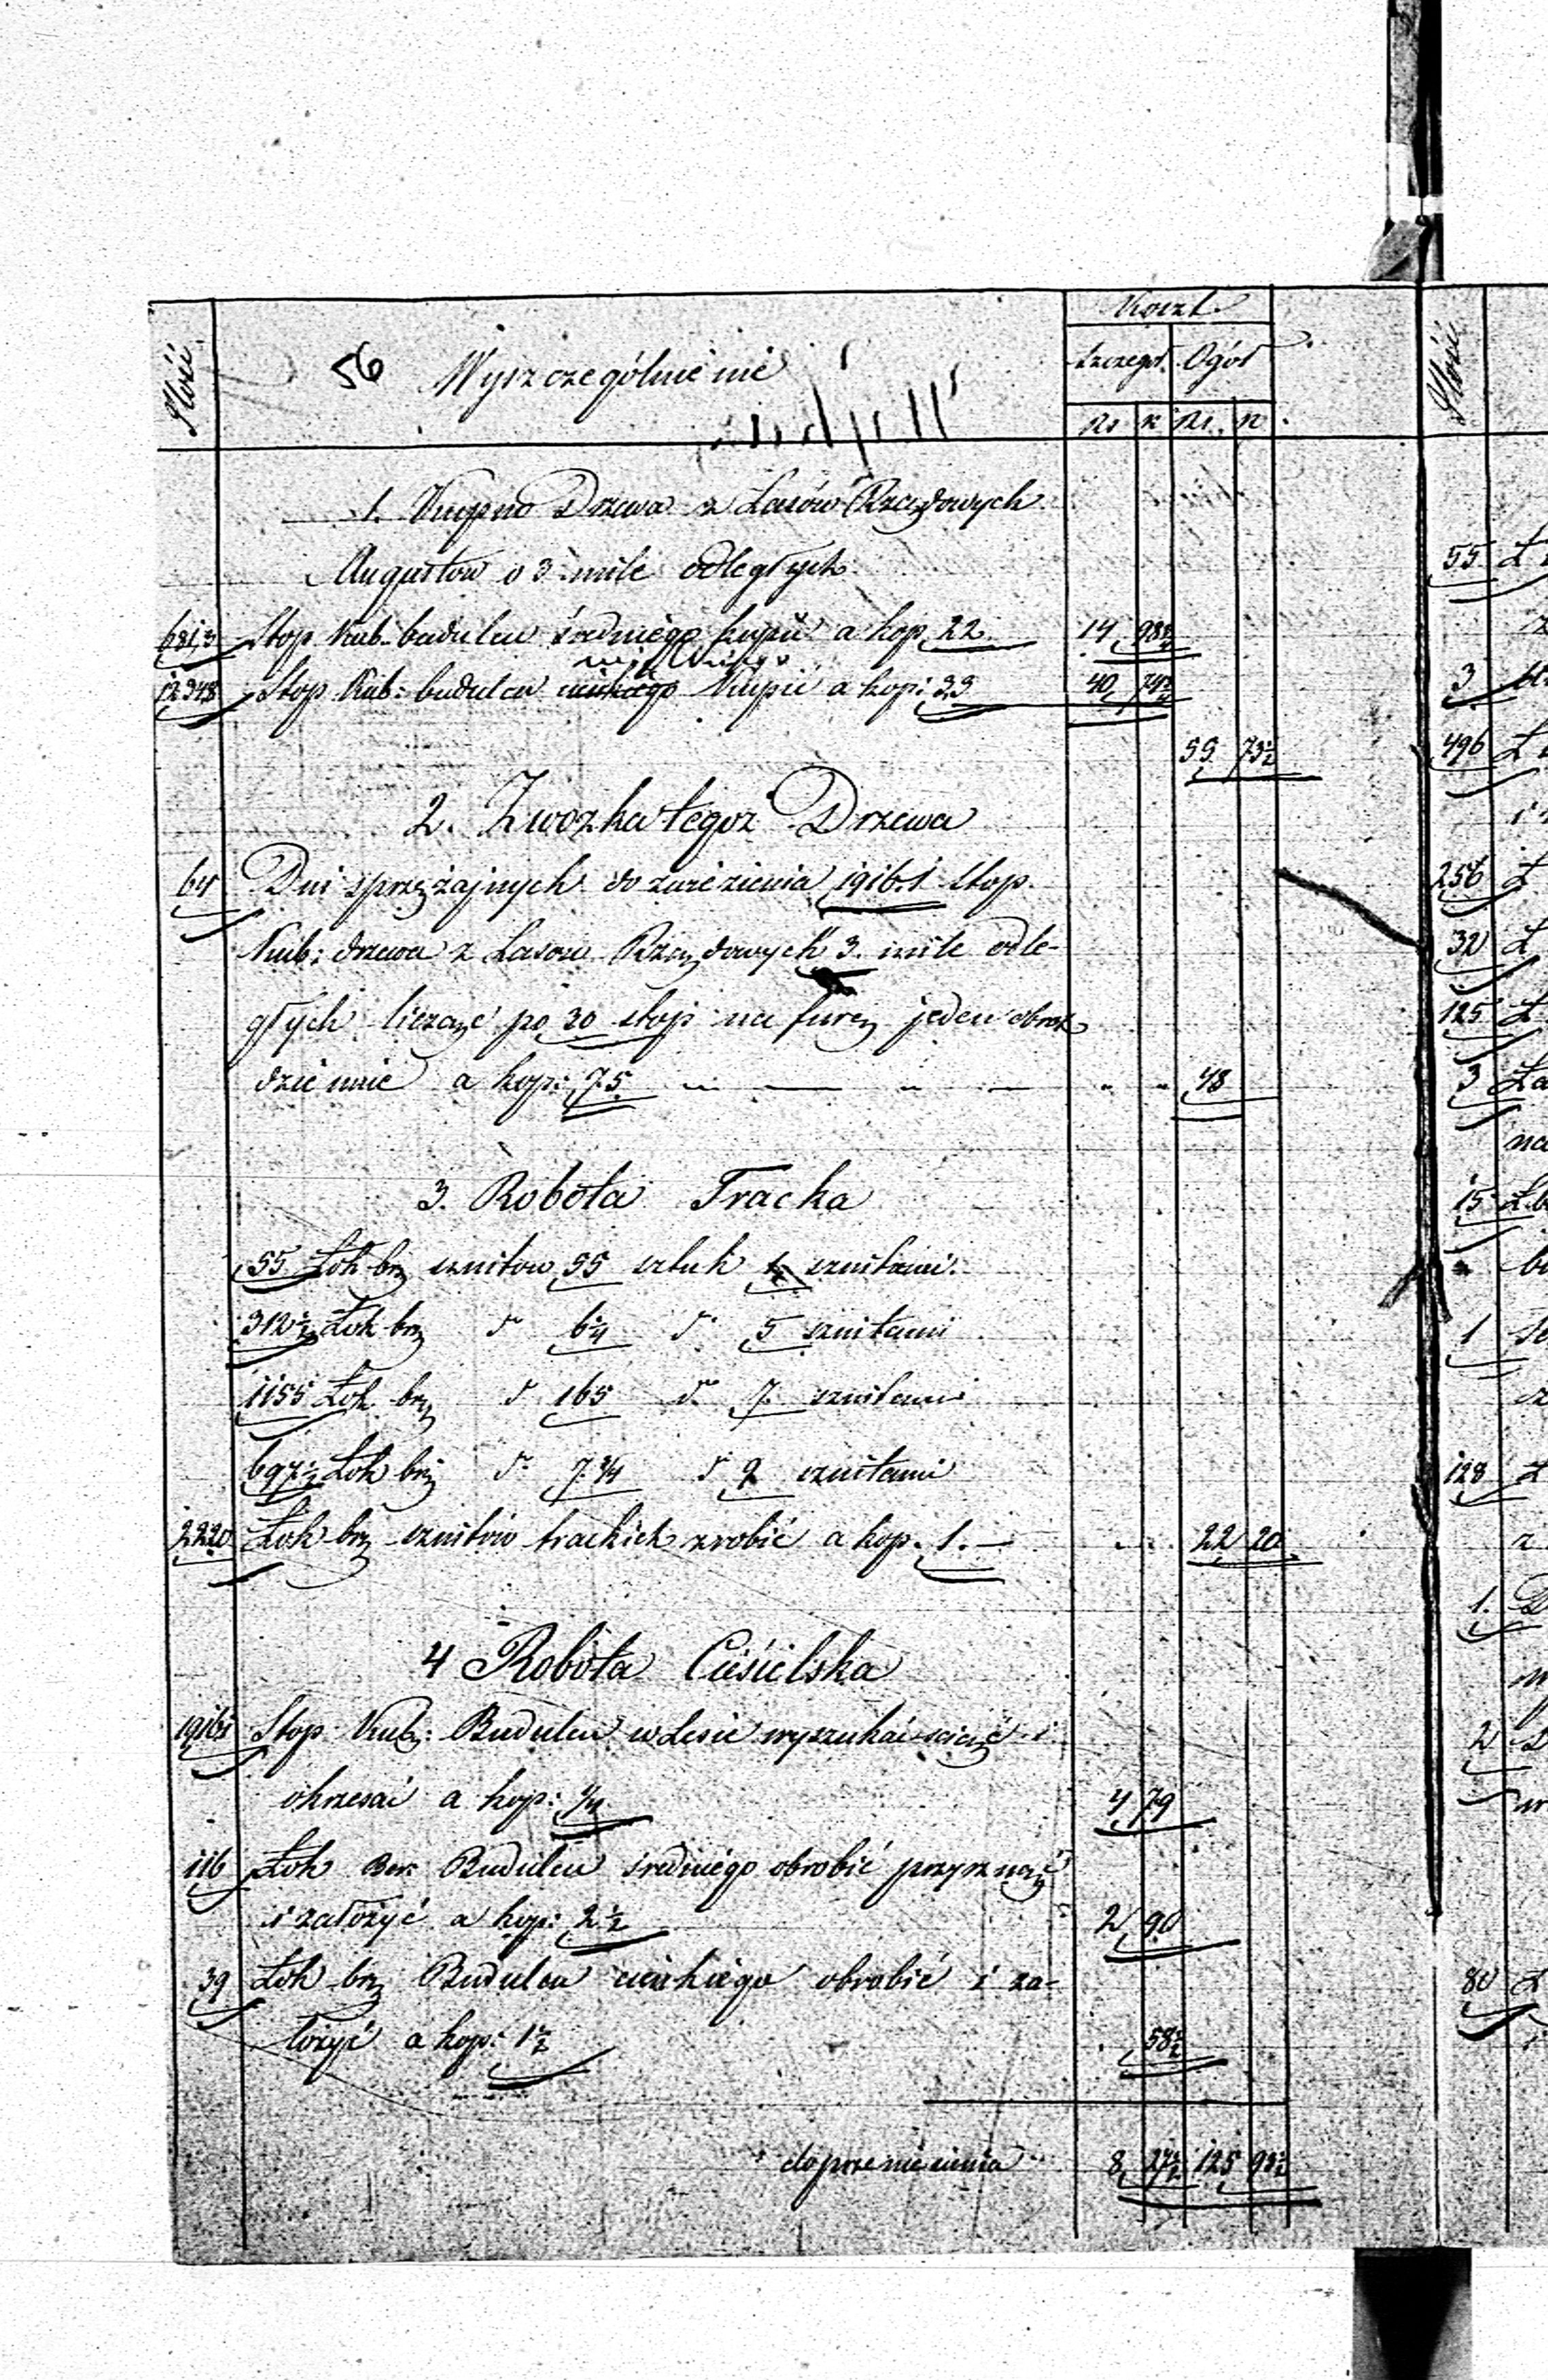 Koszt.
Ilość 56 Wyszczególnienie Szczegół. Ogół
Rs k Rs. k
1. Kupno Drzewa z Lasów Rządowych
Augustow o 3 mile odległych
681,3 Stop. Kub. budulcu średniego kupić a kop. 22 14 98¾
1234,8 Stop. Kub: budulcu Kupić a kop: 33 40 74¾
55 73½
2. Zwozka tegoż Drzewa
64 Dni sprzężajnych do zwiezienia 1916.1 stop.
Kub: drzewa z Lasow Rządowych 3. mile odle-
głych licząc po 30 stop na furę jeden obrot
dziennie a kop: 75 48
3. Robota Tracka
55 Łok. brz sznitow 55 sztuk 1 sznitami.
312½ Łok brz d° 64 d° 5 sznitami
1155 Łok. brz d° 165 d° 7. sznitami
697½ Łok brz d° 7¾ d° 9 sznitami
2220 Łok brz sznitów trackich zrobić a kop. 1.— 22 20
4 Robota Ciesielska
1916,1 Stop. Kub: Budulcu w Lesie wyszukać ściąć i
okrzesać a kop: ¼ 4 79
116 Łok Budulcu średniego obrobić przyrznąć
i założyć a kop: 2½ 2 90
39 Łok brz Budulcu cienkiego obrobić i za-
łożyć a kop: 1½ 58½
do przeniesienia 8 27½ 125 93½
Ilość
55 Ł
3
496 Ł
256 Ł
32 Ł
125 Ł
3 Ła
na
15
1
128 Ł
1.
2
80 Ł